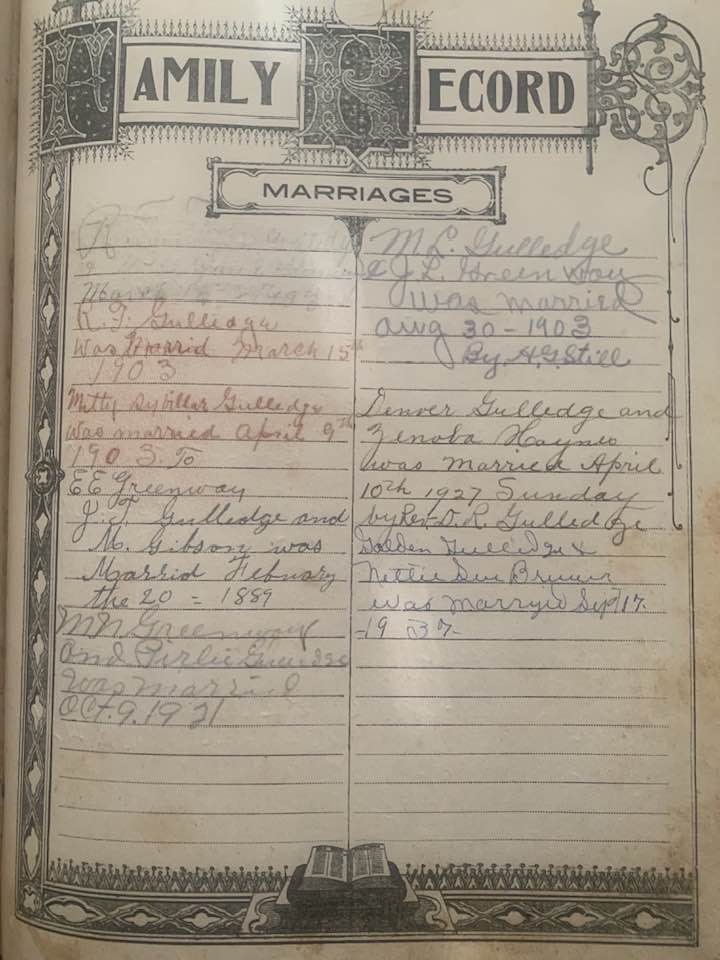 FAMILY RECORD
MARRIAGES
R
March
R. F. Gulledge
was Marrid March 15th
1903
Mitty Sybillar Gulledge
was married April 9th
1903. To
EE Greenway
J. T. Gulledge and
M. Gibson was
Marrid Febuary
the 20 = 1889
M N Greenway
and Pirlie
was marrid
Oct. 9. 1921
M L. Gulledge
& J. L. Green Way
was married
Aug 30 - 1903
By. H. G. Still
Denver Gulledge and
Zenoba Haynes
was married April
10th 1927 Sunday
by Rev. D. R. Gulledge
Golden Gulledge &
Nettie Sue
was marryied Sept 17-
-19 37-